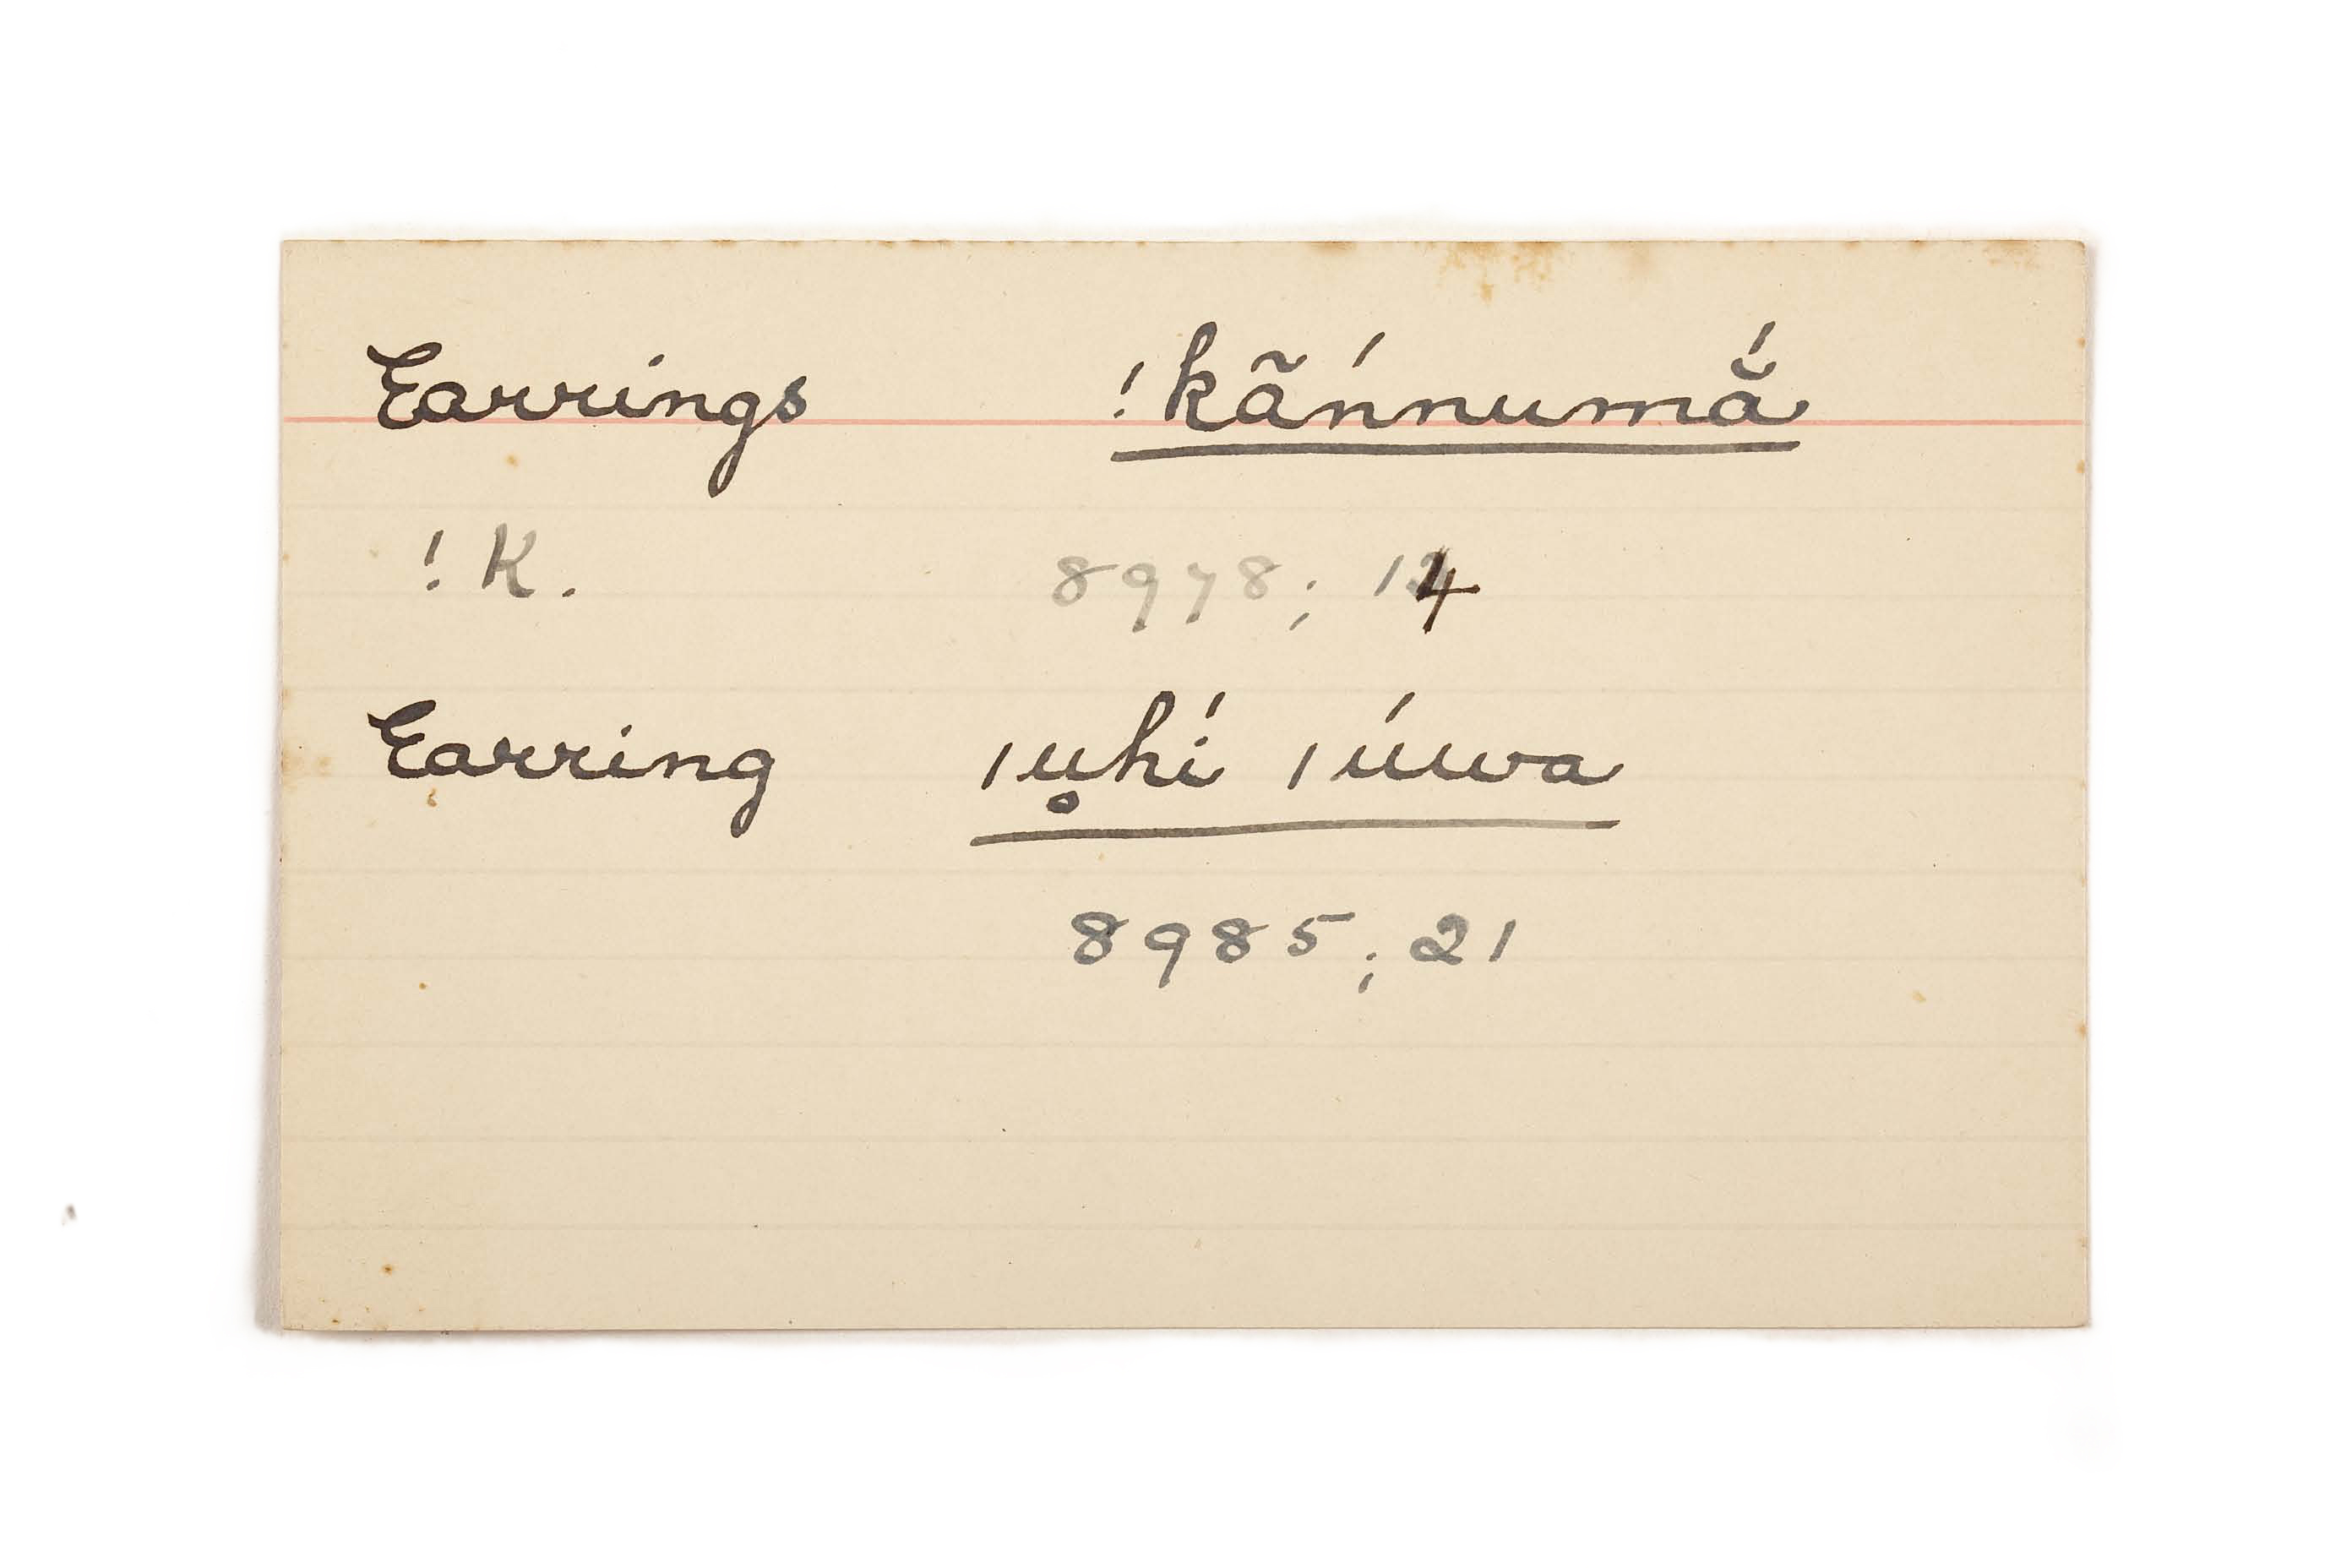 Earrings !kãńnumắ
!K. 8978; 14
Earring ǀu̥hí ǀúwa
8985; 21